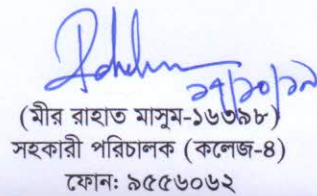 ১৭/১০/১৯
(মীর রাহাত মাসুম-১৬৩৯৮)
সহকারী পরিচালক (কলেজ-৪)
ফোন: ৯৫৫৬০৬২